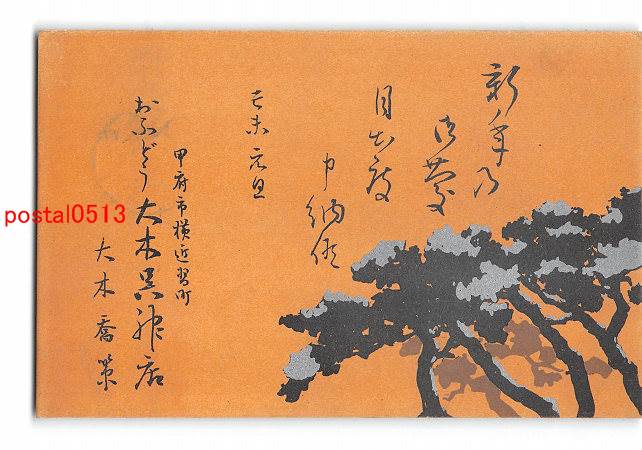 新年乃
御慶
目出度
申納候
丁未元旦
甲府市横近習町
おふどう大木呉服店
大木喬策
postal0513